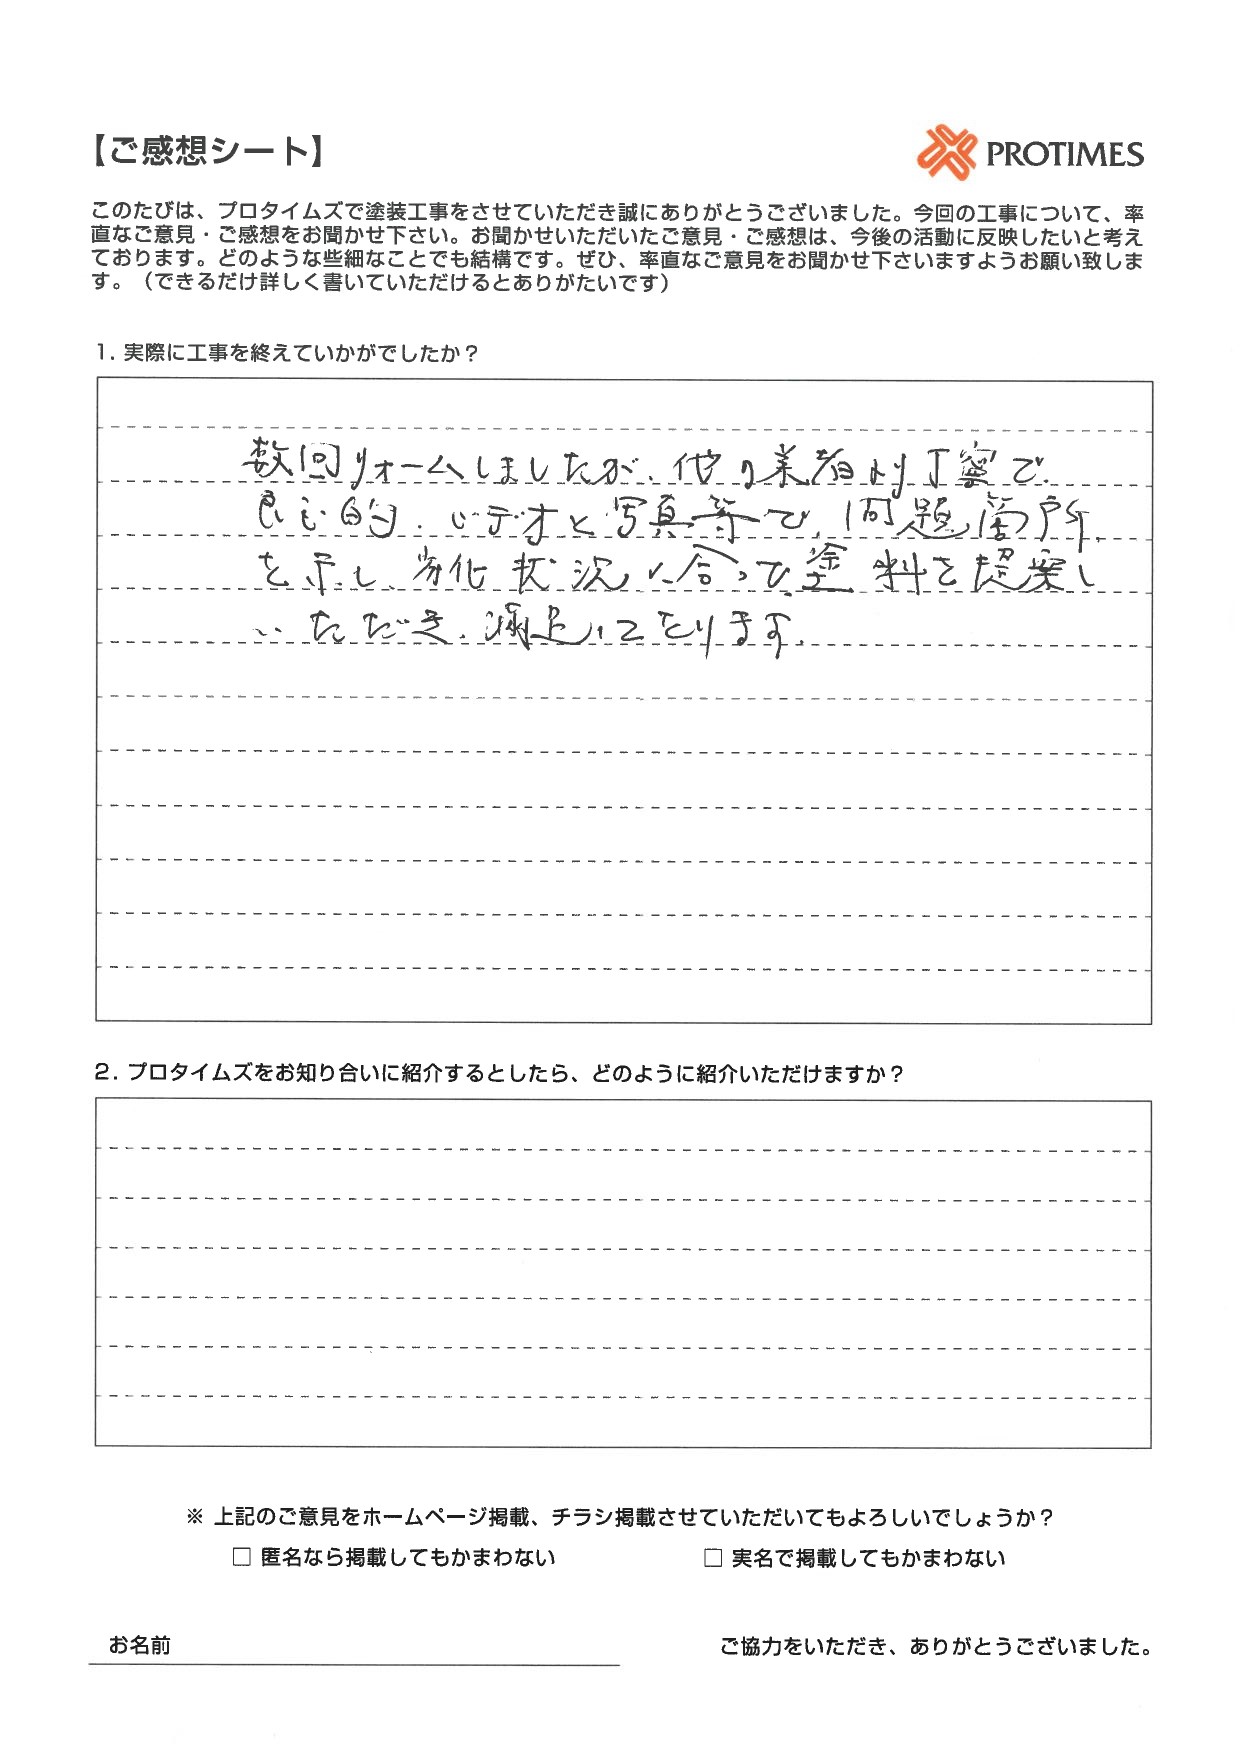 【ご感想シート】
PROTIMES
このたびは、プロタイムズで塗装工事をさせていただき誠にありがとうございました。今回の工事について、率
直なご意見・ご感想をお聞かせ下さい。お聞かせいただいたご意見・ご感想は、今後の活動に反映したいと考え
ております。どのような些細なことでも結構です。ぜひ、率直なご意見をお聞かせ下さいますようお願い致しま
す。（できるだけ詳しく書いていただけるとありがたいです）
1. 実際に工事を終えていかがでしたか？
数回リォームしましたが、他の業者より丁寧で
良心的、ビデオと写真等で、問題箇所
を示し、劣化状況に合って塗料を提案し
いただき、満足してをります。
2. プロタイムズをお知り合いに紹介するとしたら、どのように紹介いただけますか？
※ 上記のご意見をホームページ掲載、チラシ掲載させていただいてもよろしいでしょうか？
□ 匿名なら掲載してもかまわない
□ 実名で掲載してもかまわない
お名前
ご協力をいただき、ありがとうございました。